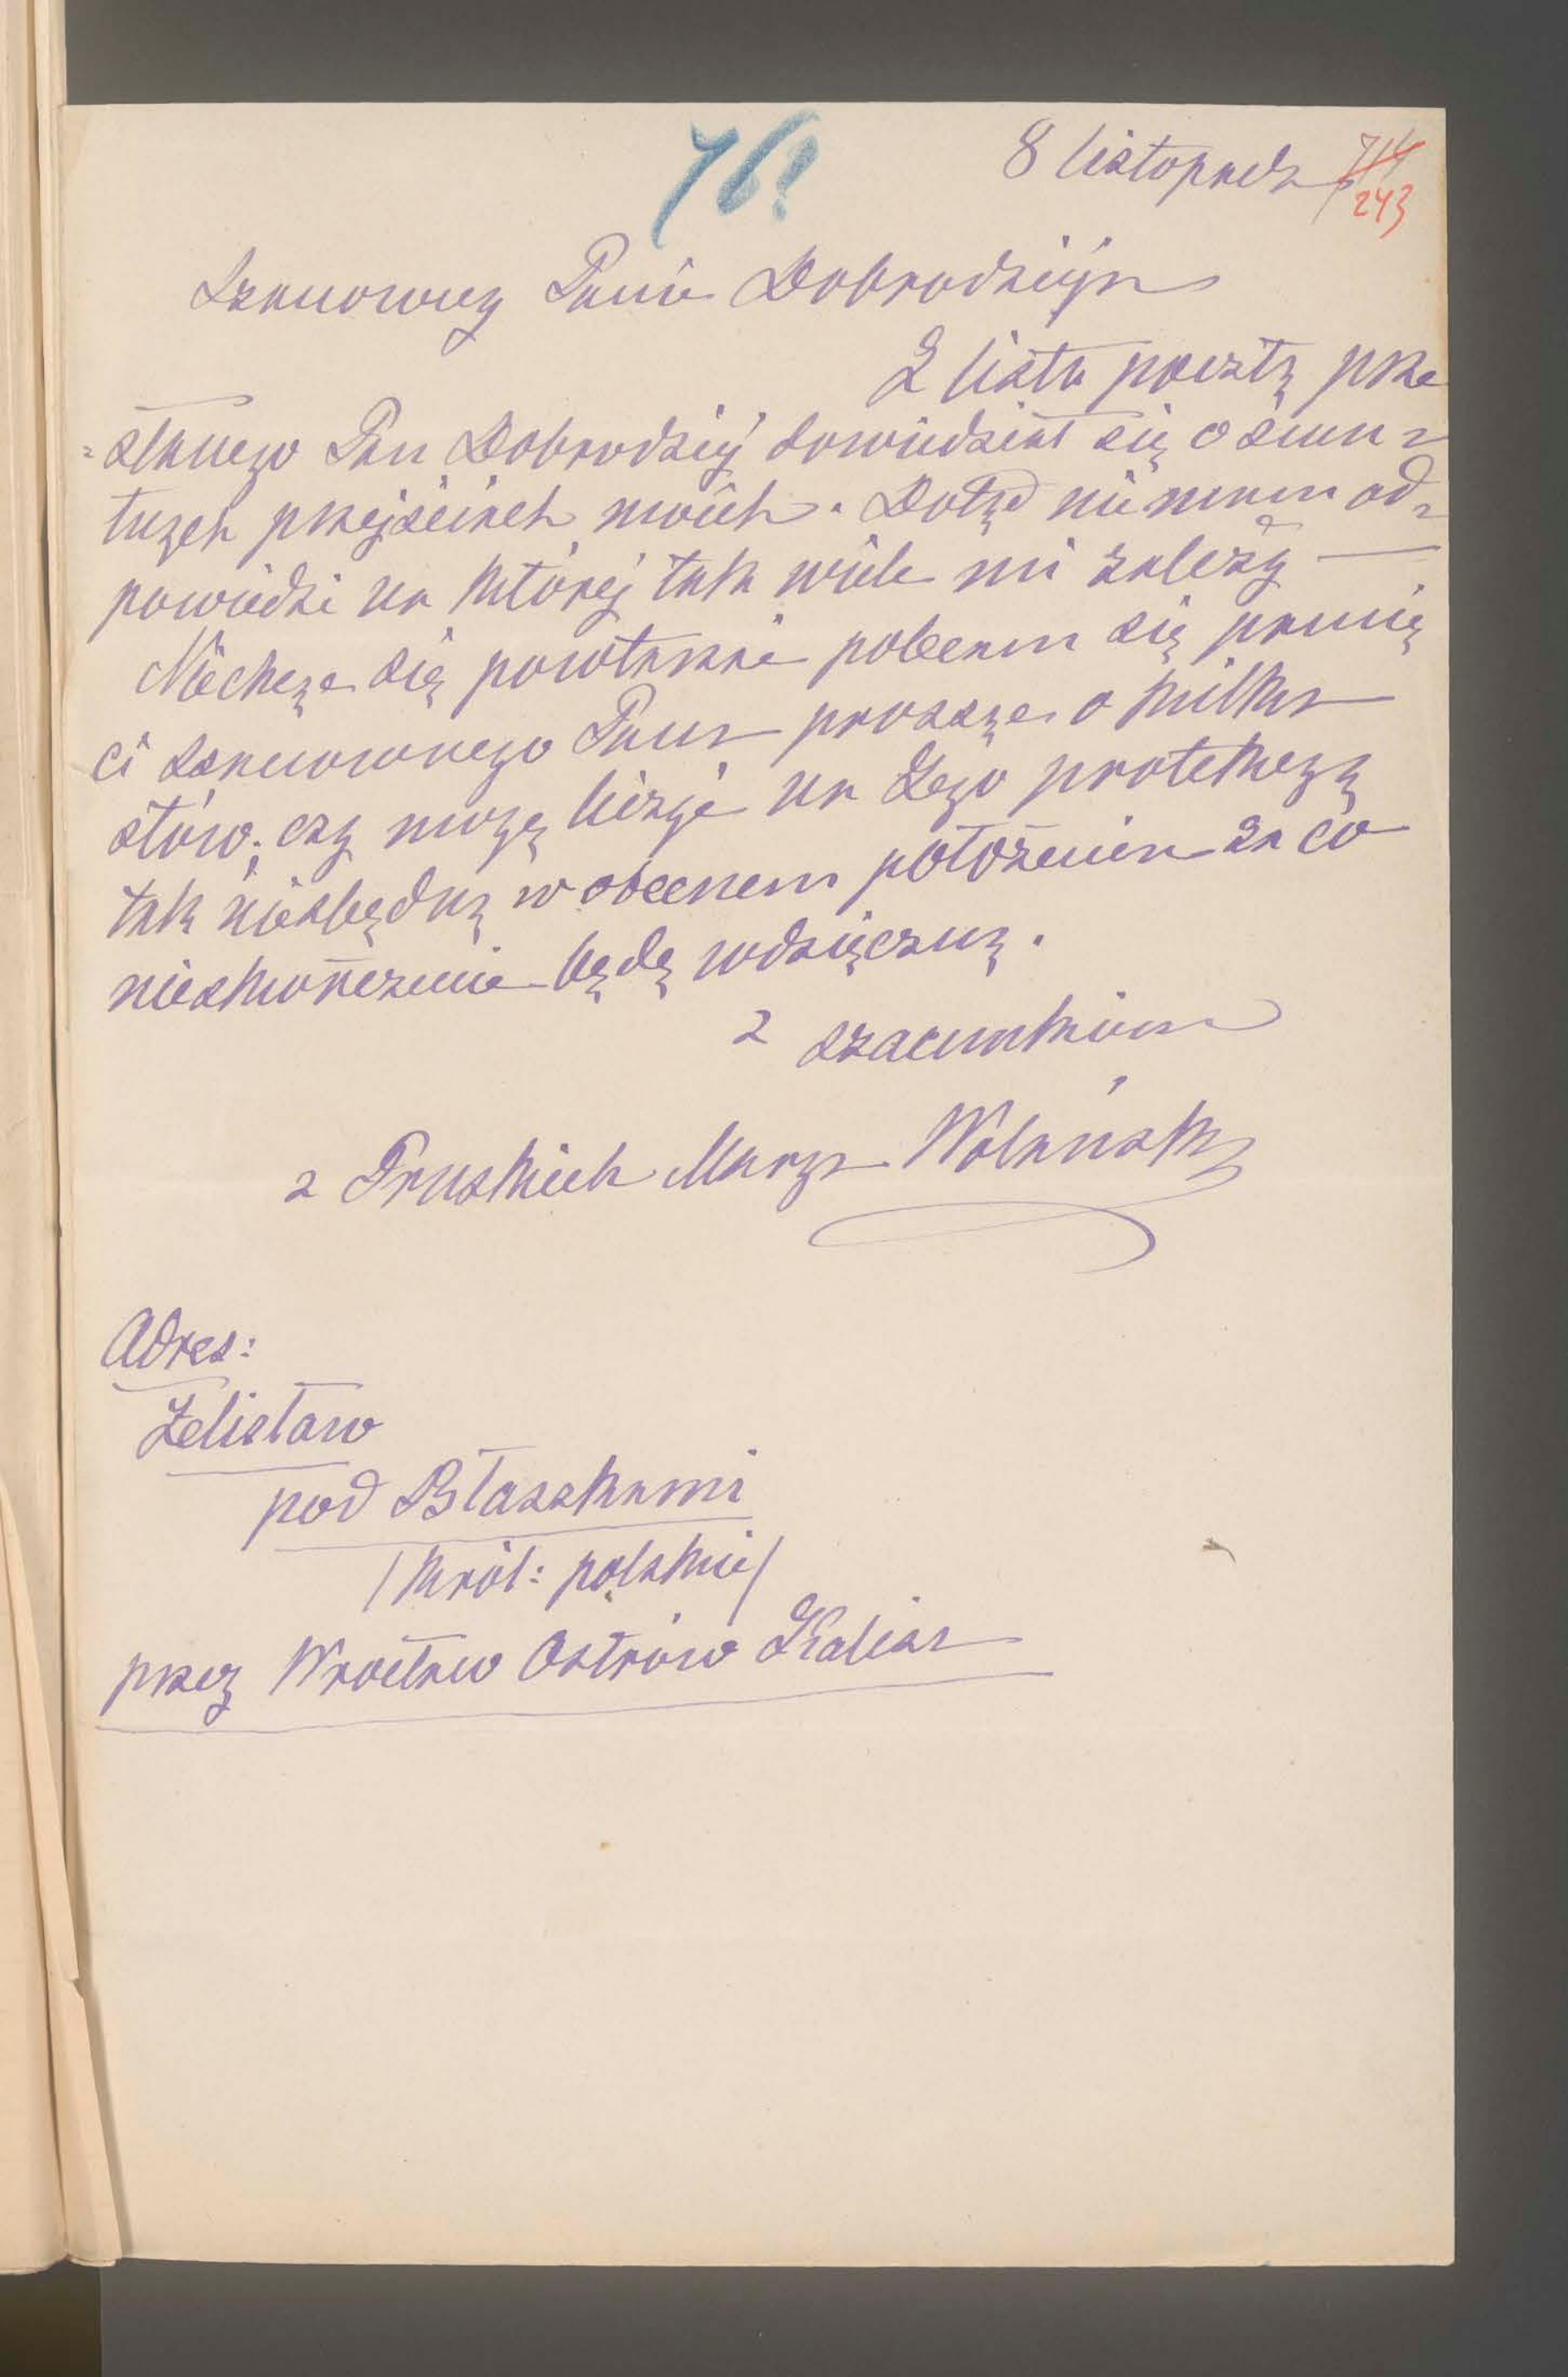 76?
8 listopada
714
243
Szanowny Panie Dobrodzieju
Z listu pocztą prze
=słanego Pan Dobrodziej dowiedział się o smu=
tnych przejściach moich. Dotąd nie mam od=
powiedzi na której tak wiele mi zależy —
Niechcąc się powtarzać polecam się pamię
ci szanownego Pana prosząc o kilka
słów; czy mogę liczyć na Jego protekcyą
tak niezbędną w obecnem położeniu za co
nieskończenie będę wdzięczną.
z szacunkiem
z Pruskich Marya Wolańska
Adres:
Żelisław
pod Błaszkami
/Król: polskie/
przez Wrocław Ostrów Kalisz